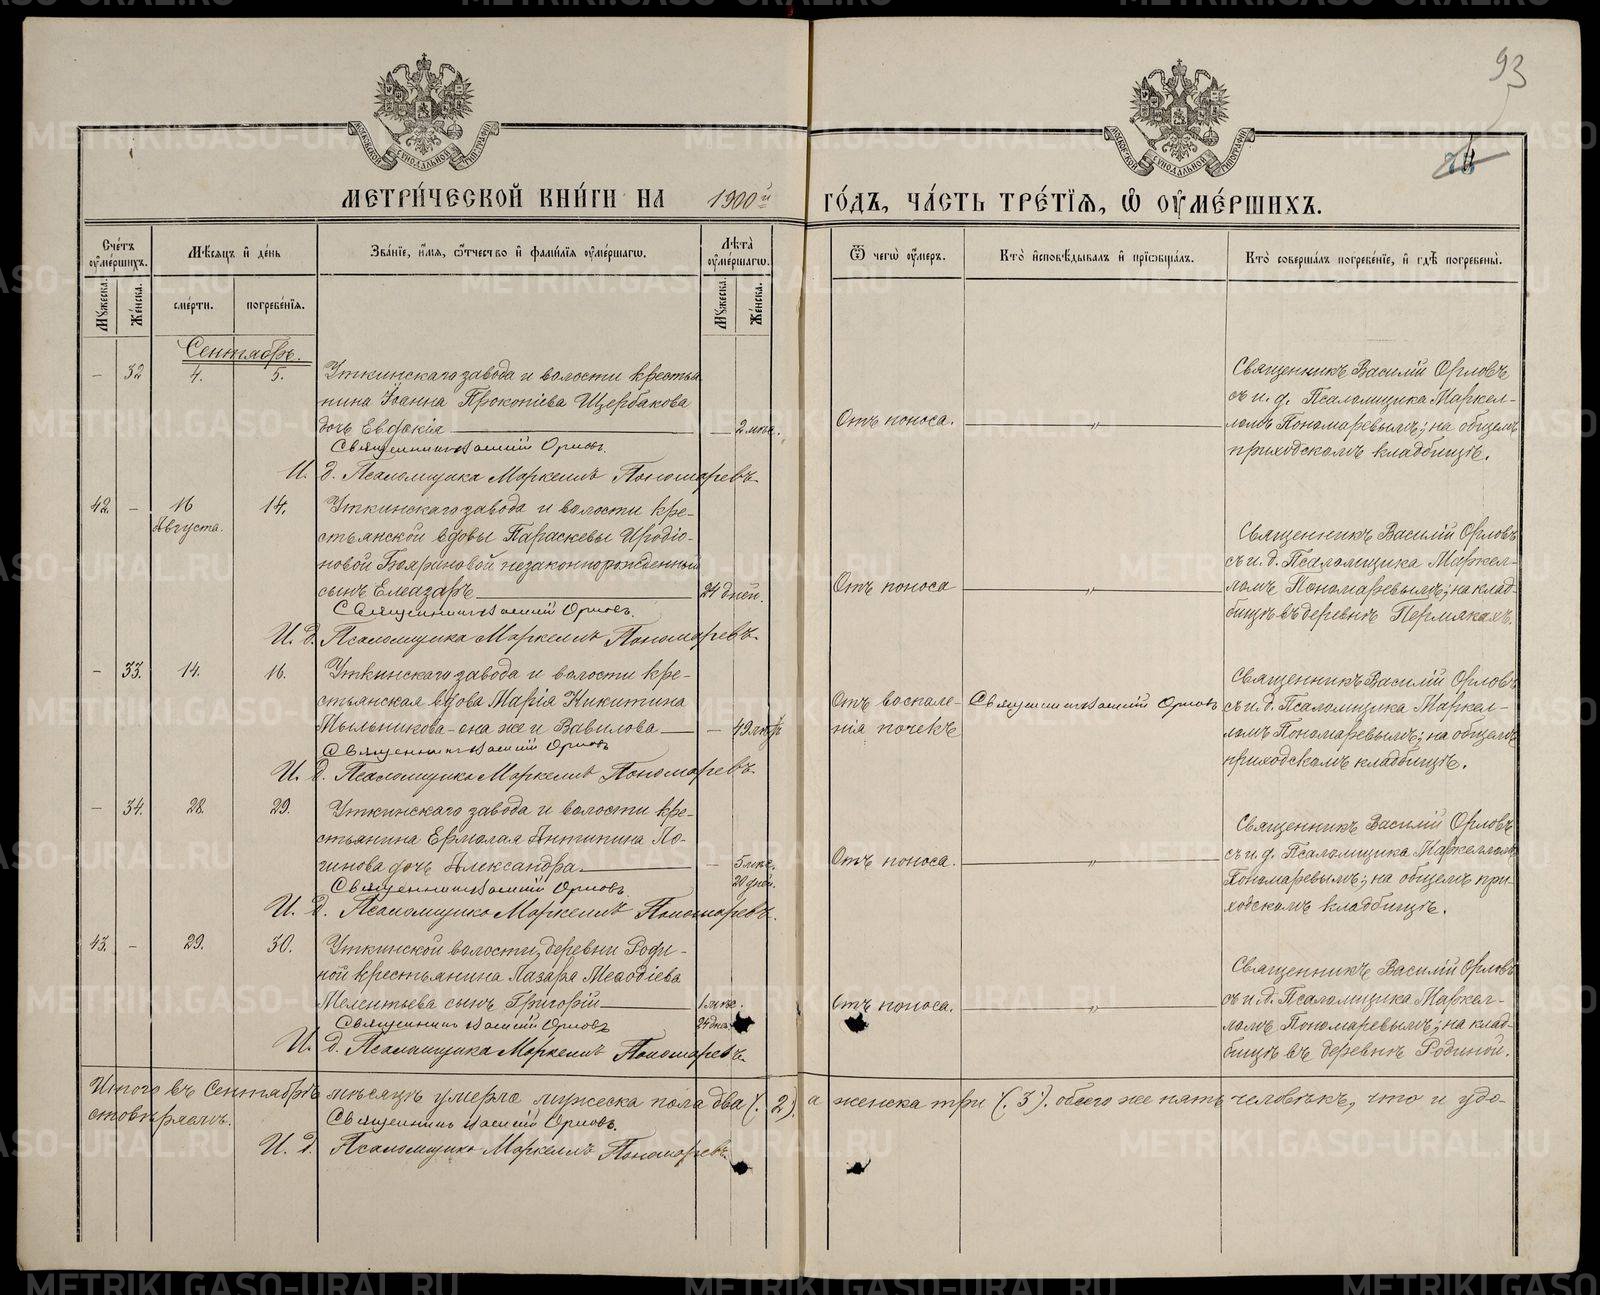 93
МЕТРИ́ЧЕСКОЙ КНИ́ГИ НА 1900й ГО́ДЪ, ЧА́СТЬ ТРЕ́ТІѦ, Ѡ ОУМЕ́РШИХЪ.
Сче́тъ оуме́ршихъ.
Му́жеска.
Же́нска.
Мѣ́сяцъ и де́нь
сме́рти.
погребе́нїѧ.
Зва́нїе, и́мѧ, ѻ҆́тчество и фами́лїѧ оуме́ршагѡ.
Лѣ́та оуме́ршагѡ.
Му́жеска.
Же́нска.
Ѿ чегѡ̀ оу́меръ.
Кто̀ и҆сповѣ́дывалъ и҆ прїѡбща́лъ.
Кто̀ соверша́лъ погребе́нїе, и҆ гдѣ̀ погребены̀.
Сентябрь.
– 32 4. 5.
Уткинскаго завода и волости крестья
нина Іоанна Прокопіева Щербакова
дочь Евдокія — – 2 мѣс.
Священникъ Василій Орловъ.
И. д. Псаломщика Маркеллъ Пономаревъ.
Отъ поноса. — „ —
Священникъ Василій Орловъ
съ и. д. Псаломщика Маркел-
ломъ Пономаревымъ; на общемъ
приходскомъ кладбищѣ.
42. – 16 Августа. 14.
Уткинскаго завода и волости кре-
стьянской вдовы Параскевы Иродіо-
новой Бояриновой незаконнорожденный
сынъ Елеазаръ — 24 дней.
Священникъ Василій Орловъ.
И. д. Псаломщика Маркеллъ Пономаревъ.
Отъ поноса — „ —
Священникъ Василій Орловъ
съ и. д. Псаломщика Маркел-
ломъ Пономаревымъ; на клад-
бищѣ въ деревнѣ Пермякахъ.
– 33. 14. 16.
Уткинскаго завода и волости кре-
стьянская вдова Марія Никитина
Мыльникова – она же и Вавилова — – 49 лѣтъ
Священникъ Василій Орловъ
И. д. Псаломщика Маркеллъ Пономаревъ.
Отъ воспале-
нія почекъ
Священникъ Василій Орловъ
Священникъ Василій Орловъ
съ и. д. Псаломщика Маркел-
ломъ Пономаревымъ; на общемъ
приходскомъ кладбищѣ.
– 34. 28. 29.
Уткинскаго завода и волости кре-
стьянина Ермолая Антипина Ло-
гинова дочь Александра — – 5 мѣс.
20 дней.
Священникъ Василій Орловъ
И. д. Псаломщика Маркеллъ Пономаревъ.
Отъ поноса. — „ —
Священникъ Василій Орловъ
съ и. д. Псаломщика Маркелломъ
Пономаревымъ; на общемъ при-
ходскомъ кладбищѣ.
43. – 29. 30.
Уткинской волости, деревни Роди-
ной крестьянина Лазара Меѳодіева
Мелентьева сынъ Григорій — 1 мѣс.
24 дня.
Священникъ Василій Орловъ
И. д. Псаломщика Маркеллъ Пономаревъ.
Отъ поноса. — „ —
Священникъ Василій Орловъ
съ и. д. Псаломщика Маркел-
ломъ Пономаревымъ; на клад-
бищѣ въ деревнѣ Родиной.
Итого въ Сентябрѣ мѣсяцѣ умерло мужеска пола два (. 2.) а женска три (. 3.) всего же пять человѣкъ, что и удо-
стовѣряемъ.
Священникъ Василій Орловъ.
И. д. Псаломщика Маркеллъ Пономаревъ.
METRIKI.GASO-URAL.RU